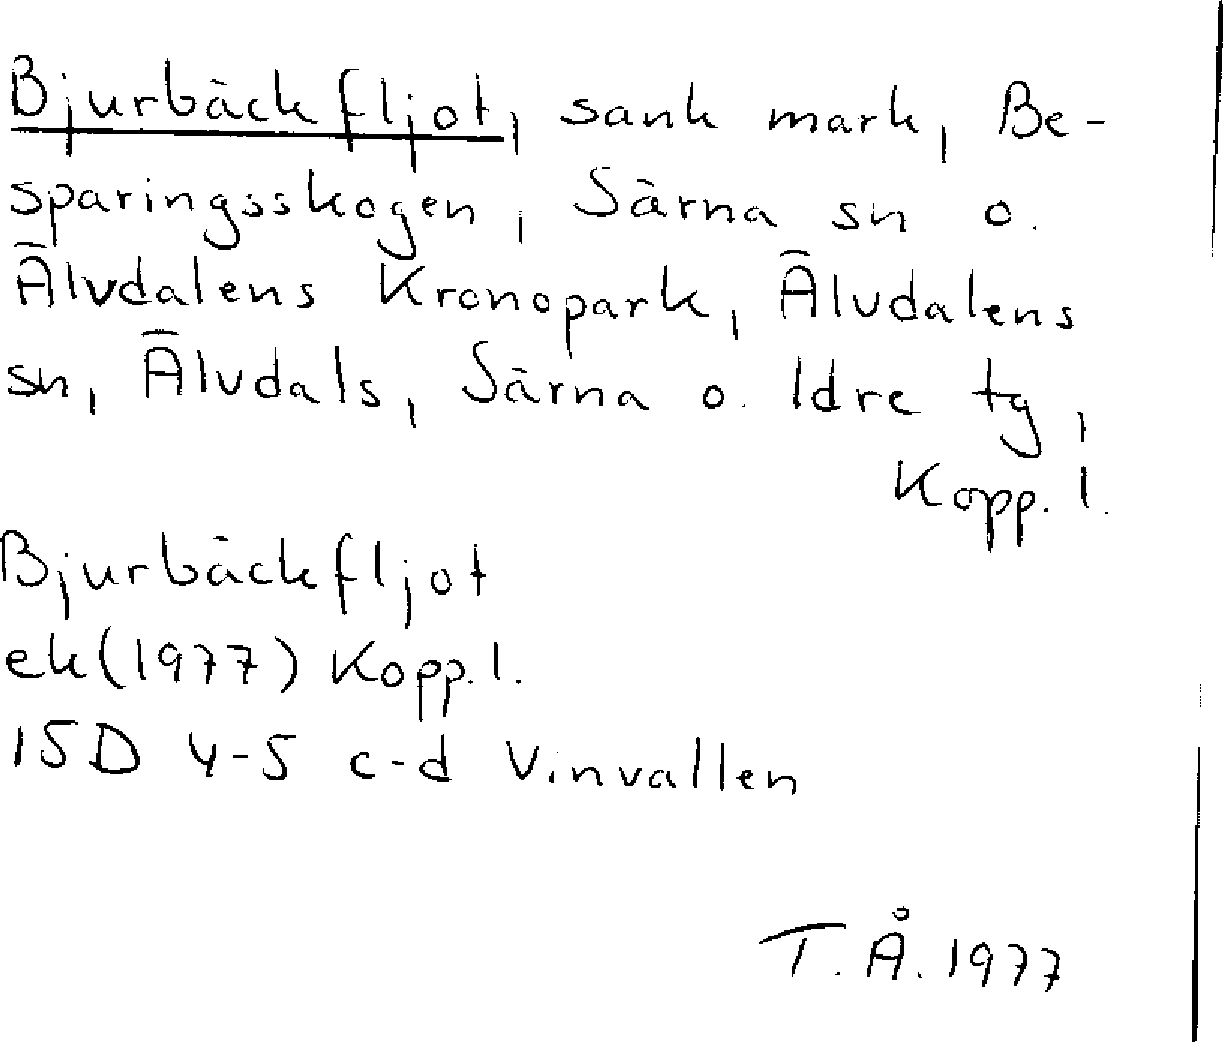 Bjurbäckfljot, sank mark, Be-
sparingsskogen, Särna sn o.
Älvdalens Kronopark, Älvdalens
sn, Älvdals, Särna o. Idre tg,
Kopp. l.
Bjurbäckfljot
ek(1977) Kopp. l.
15D 4-5 c-d Vinvallen
T. Å. 1977